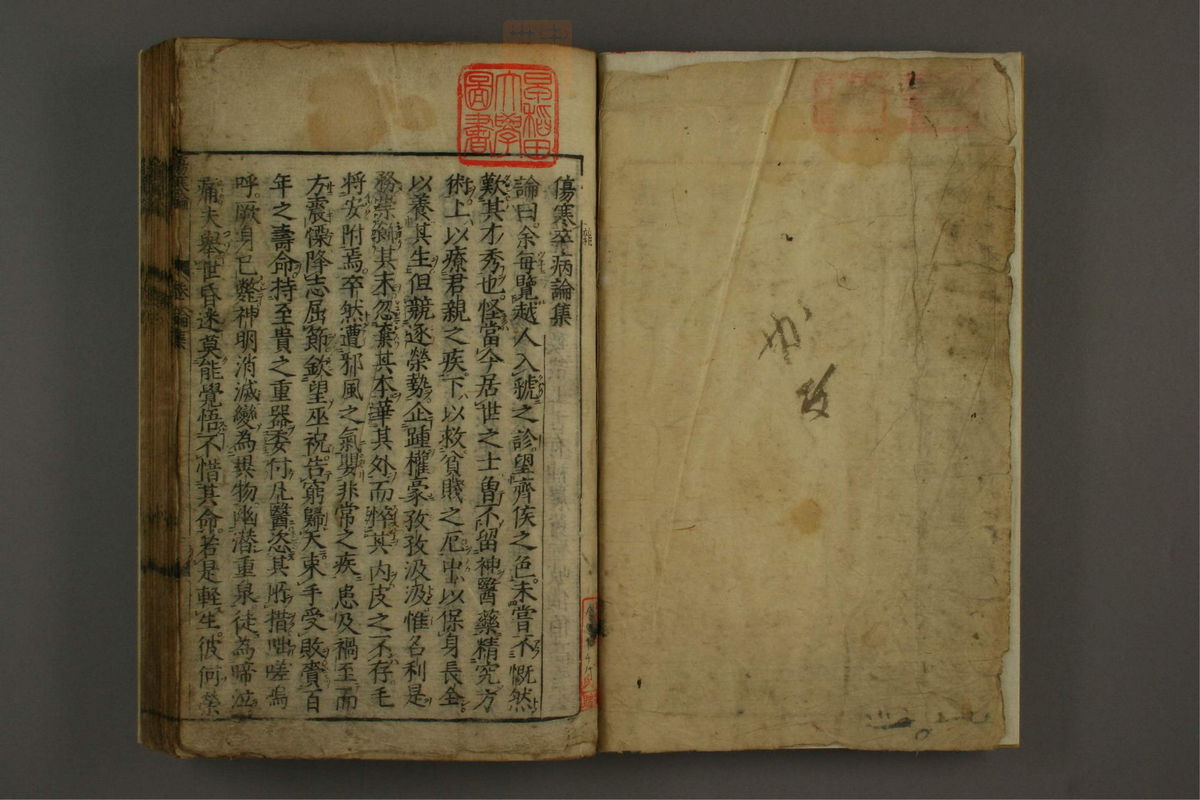 傷寒卒病論集
論曰余每覽越人入虢之診望齊侯之色未嘗不慨然
歎其才秀也怪當今居世之士曾不留神醫藥精究方
術上以療君親之疾下以救貧賤之厄中以保身長全
以養其生但競逐榮勢企踵權豪孜孜汲汲惟名利是
務崇飾其末忽棄其本華其外而悴其內皮之不存毛
將安附焉卒然遭邪風之氣嬰非常之疾患及禍至而
方震慄降志屈節欽望巫祝告窮歸天束手受敗賚百
年之壽命持至貴之重器委付凡醫恣其所措咄嗟嗚
呼厥身已斃神明消滅變為異物幽潛重泉徒為啼泣
痛夫舉世昏迷莫能覺悟不惜其命若是輕生彼何榮
早稻田大學圖書